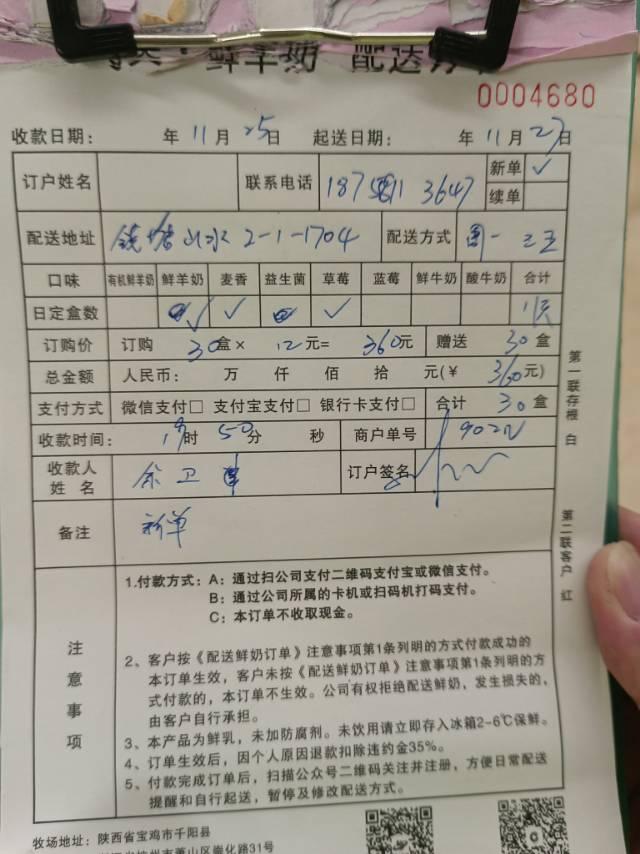 鲜羊奶 配送
0004680
收款日期： 年 11 月 25 日 起送日期： 年 11 月 27 日
订户姓名 联系电话 3647 新单 ✓
续单
配送地址 钱塘山水 2-1-1704 配送方式 周一
口味 有机鲜羊奶 鲜羊奶 麦香 益生菌 草莓 蓝莓 鲜牛奶 酸牛奶 合计
日定盒数 ✓ ✓ ✓
订购价 订购 30 盒× 12 元= 360 元 赠送 30 盒
总金额 人民币： 万 仟 佰 拾 元(¥ 360 元)
支付方式 微信支付□ 支付宝支付□ 银行卡支付□ 合计 30 盒
收款时间： 时 50 分 秒 商户单号
收款人姓名 余卫 订户签名
备注 新单
第一联存根 白
第二联客户 红
注意事项
1.付款方式：A：通过扫公司支付二维码支付宝或微信支付。
B：通过公司所属的卡机或扫码机打码支付。
C：本订单不收取现金。
2、客户按《配送鲜奶订单》注意事项第1条列明的方式付款成功的
本订单生效，客户未按《配送鲜奶订单》注意事项第1条列明的方
式付款的，本订单不生效。公司有权拒绝配送鲜奶，发生损失的，
由客户自行承担。
3、本产品为鲜乳，未加防腐剂。未饮用请立即存入冰箱2-6℃保鲜。
4、订单生效后，因个人原因退款扣除违约金35%。
5、付款完成订单后，扫描公众号二维码关注并注册，方便日常配送
提醒和自行起送，暂停及修改配送方式。
牧场地址：陕西省宝鸡市千阳县
萧山区崇化路31号